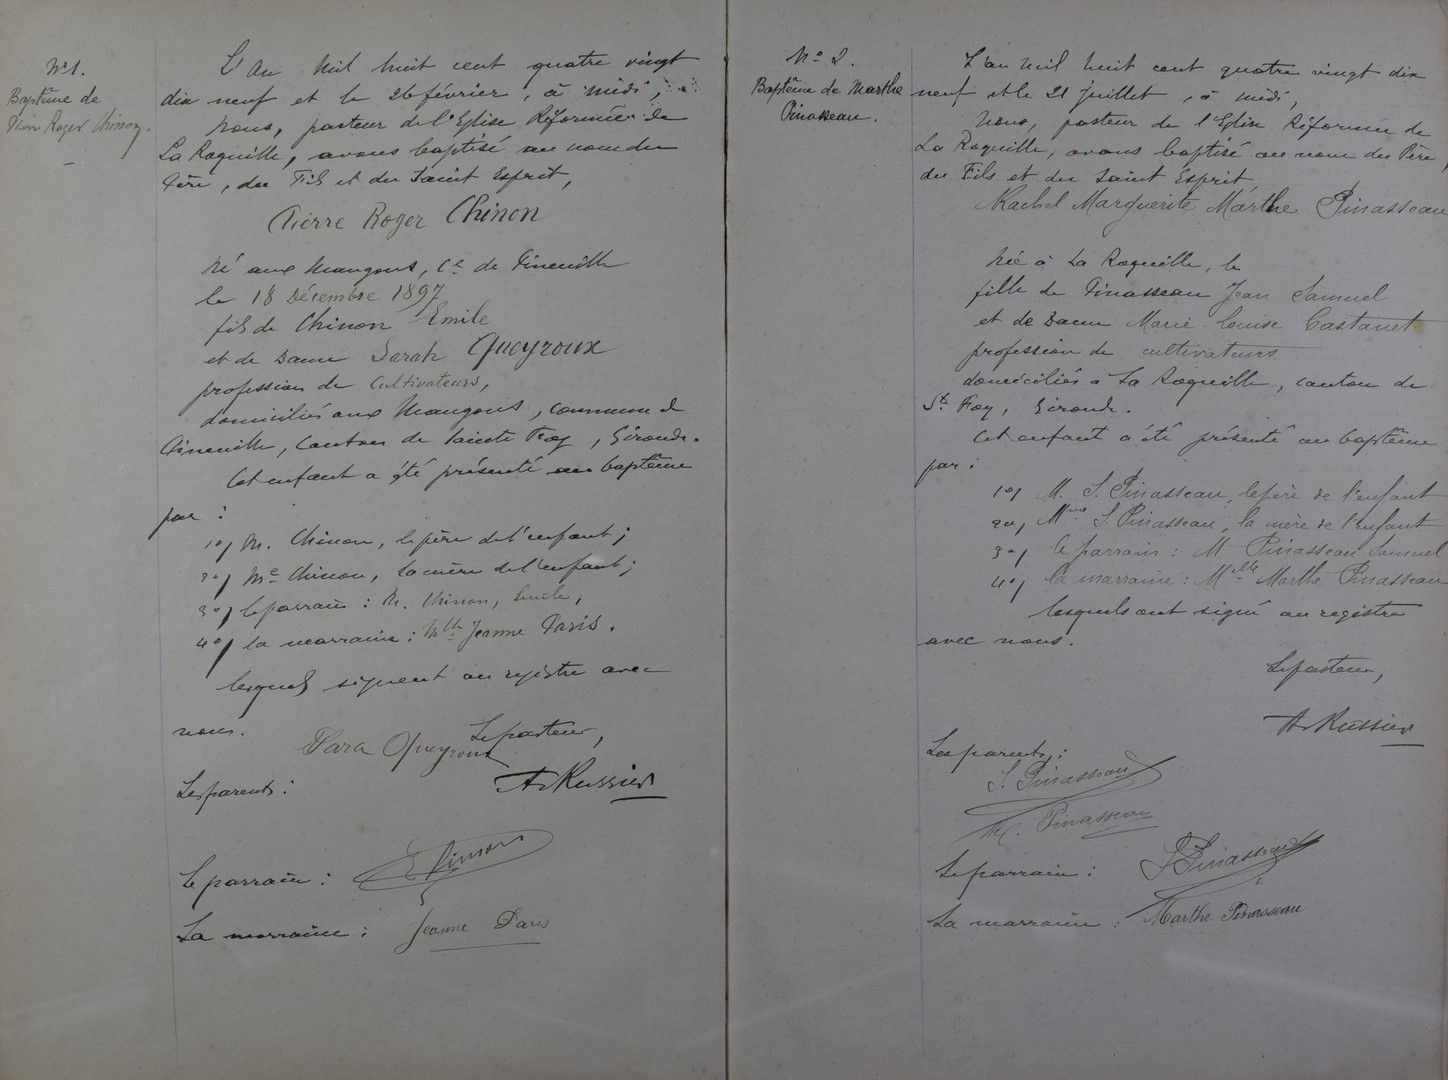 N° 1.
Baptême de
Pierre Roger Chinon.
L'An Mil huit cent quatre vingt
dix neuf et le 26 février, à midi,
Nous, pasteur de l'Eglise Réformée de
La Roquille, avons baptisé au nom du
Père, du Fils et du Saint Esprit,
Pierre Roger Chinon
Né aux Mangons, Cne de Pineuilh
le 18 Décembre 1897
fils de Chinon Emile
et de Dame Sarah Queyroux
profession de Cultivateurs,
domiciliés aux Mangons, commune de
Pineuilh, Canton de Sainte Foy, Gironde.
Cet enfant a été présenté au baptême
par :
1°/ M. Chinon, le père de l'enfant ;
2°/ Me Chinon, la mère de l'enfant ;
3°/ le parrain : M. Chinon, Emile ;
4°/ la marraine : Mlle Jeanne Paris.
lesquels signent au registre avec
nous.
Le pasteur,
Sara Queyroux
Les parents :
A Russier
Le parrain :
E Chinon
La marraine :
Jeanne Paris
N° 2.
Baptême de Marthe
Pinasseau.
L'an mil huit cent quatre vingt dix
neuf et le 21 Juillet, à midi,
Nous, pasteur de l'Eglise Réformée de
La Roquille, avons baptisé au nom du Père,
du Fils et du Saint Esprit
Rachel Marguerite Marthe Pinasseau
Née à La Roquille, le
fille de Pinasseau Jean Samuel
et de Dame Marie Louise Castanet
profession de cultivateurs
domiciliés à La Roquille, canton de
Ste Foy, Gironde.
Cet enfant a été présenté au baptême
par :
1°/ M. S. Pinasseau, le père de l'enfant
2°/ Mme S. Pinasseau, la mère de l'enfant
3°/ le parrain : M Pinasseau Samuel
4°/ la marraine : Melle Marthe Pinasseau
lesquels ont signé au registre
avec nous.
Le pasteur,
A Russier
Les parents :
S. Pinasseau
M. Pinasseau
Le parrain :
S Pinasseau
La marraine :
Marthe Pinasseau